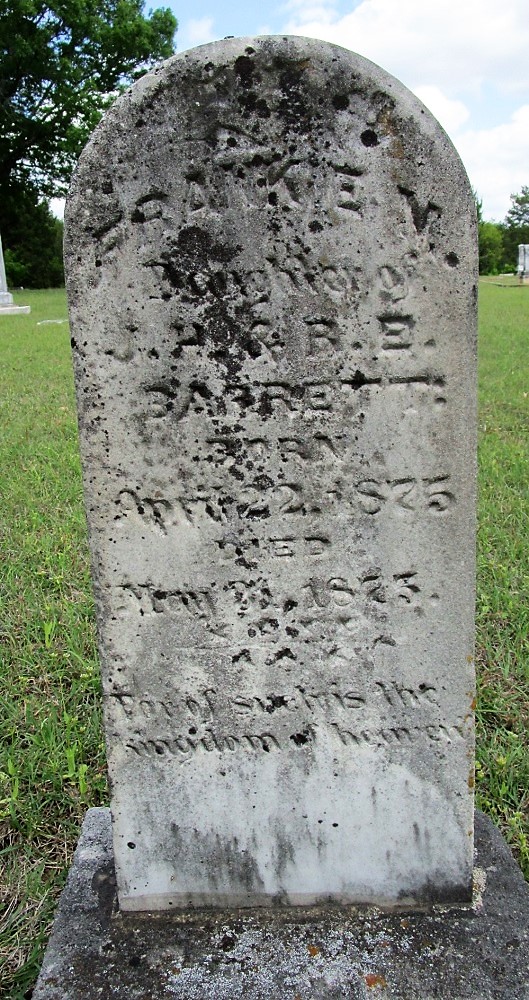 FRANKIE V.
Daughter of
J. H. & R. E.
BARRETT.
BORN
April 22, 1875
DIED
May 31, 1875.
For of such is the
kingdom of heaven